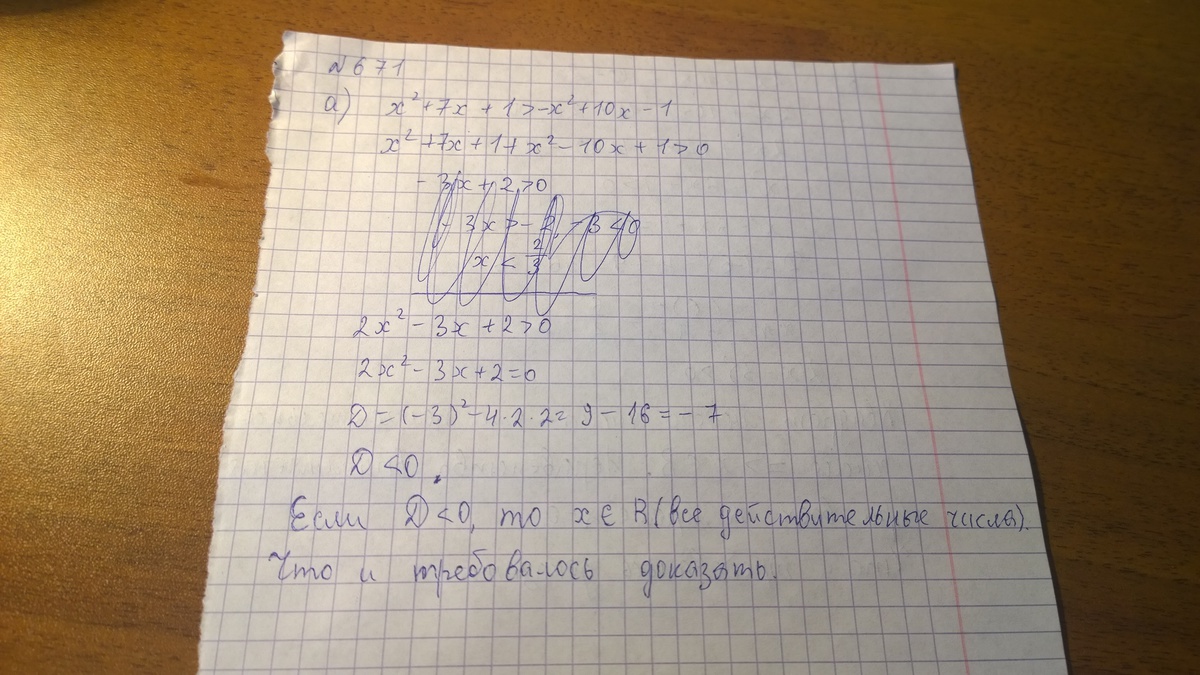 №671
а) x²+7x+1>-x²+10x-1
x²+7x+1+x²-10x+1>0
-3x+2>0
-3x>-2, -3<0
x<2/3
2x²-3x+2>0
2x²-3x+2=0
D=(-3)²-4·2·2=9-16=-7
D<0.
Если D<0, то x∈R(все действительные числа).
Что и требовалось доказать.